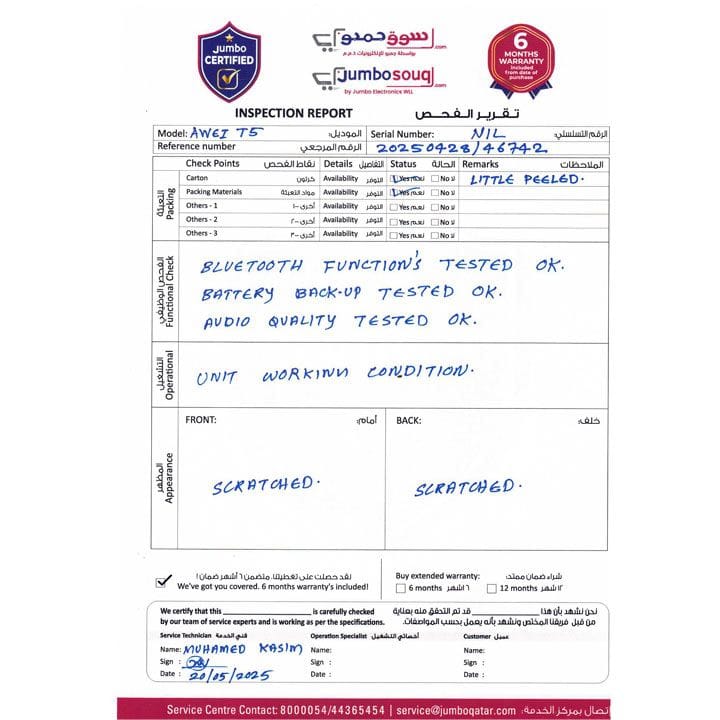 Jumbo
CERTIFIED
سوق جمبو.com
بواسطة جمبو للإلكترونيات ذ.م.م
jumbosouq.com
by Jumbo Electronics WLL
6
MONTHS
WARRANTY
Included
from date of
purchase
INSPECTION REPORT تقرير الفحص
Model: AWEI T5 الموديل: Serial Number: NIL الرقم التسلسلي:
Reference number الرقم المرجعي 20250428/46742
Check Points نقاط الفحص Details التفاصيل Status الحالة Remarks الملاحظات
التعبئة Packing
Carton كرتون Availability التوفر Yes نعم No لا LITTLE PEELED.
Packing Materials مواد التعبئة Availability التوفر Yes نعم No لا
Others - 1 أخرى -١ Availability التوفر Yes نعم No لا
Others - 2 أخرى -٢ Availability التوفر Yes نعم No لا
Others - 3 أخرى -٣ Availability التوفر Yes نعم No لا
الفحص الوظيفي Functional Check
BLUETOOTH FUNCTION'S TESTED OK.
BATTERY BACK-UP TESTED OK.
AUDIO QUALITY TESTED OK.
التشغيل Operational
UNIT WORKINN CONDITION.
المظهر Appearance
FRONT: أمام: BACK: خلف:
SCRATCHED. SCRATCHED.
لقد حصلت على تغطيتنا. متضمن ٦ أشهر ضمان!
We've got you covered. 6 months warranty's included!
Buy extended warranty: شراء ضمان ممتد:
6 months ٦ اشهر 12 months ١٢ شهر
We certify that this is carefully checked
by our team of service experts and is working as per the specifications.
نحن نشهد بأن هذا قد تم التحقق منه بعناية
من قبل فريقنا المختص ونشهد بأنه يعمل بحسب المواصفات.
Service Technician فني الخدمة Operation Specialist أخصائي التشغيل Customer عميل
Name: MUHAMED KASIM Name: Name:
Sign : Sign : Sign :
Date : 20/05/2025 Date : Date :
Service Centre Contact: 8000054/44365454 | service@jumboqatar.com اتصال بمركز الخدمة: